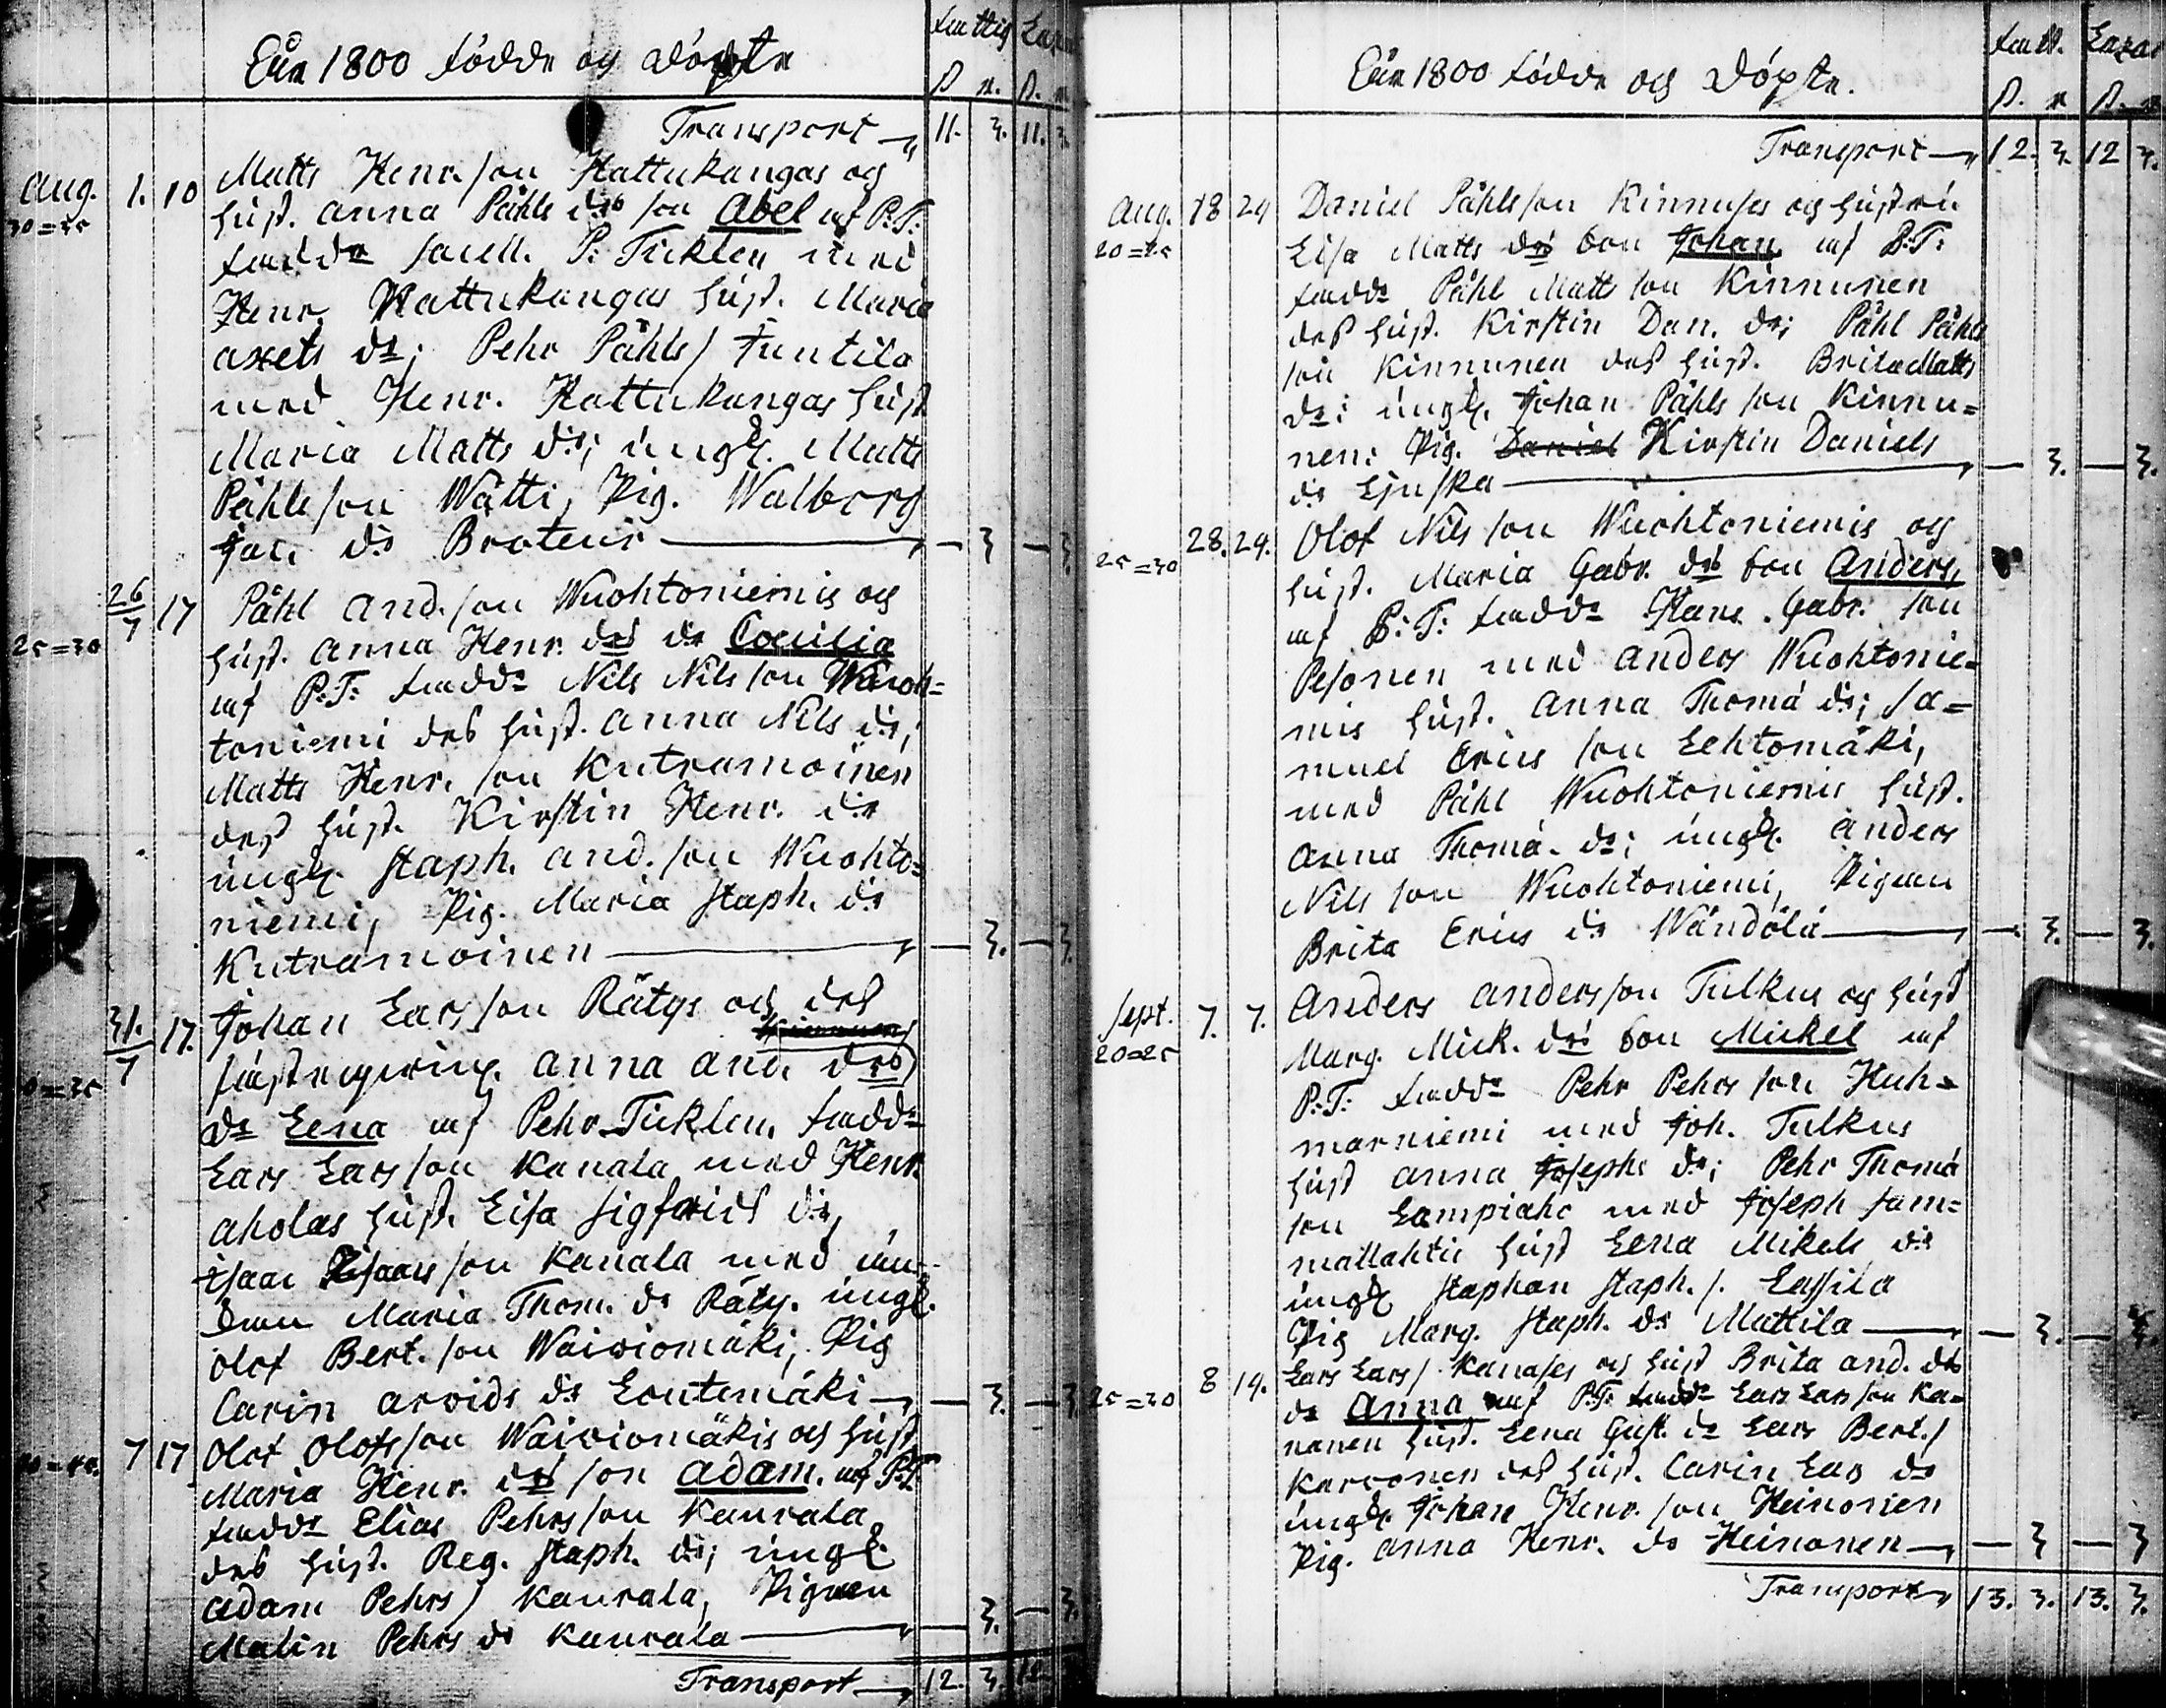 Åår 1800 födde och döpte
fattig Laza
ß r. ß. r
Transport 11. 3. 11. 3
Aug. 1. 10 Matts Henr. son Hattukangas och
30=35 hust. Anna Påhls drs son Abel af P: T:
fadd. P: Ticklen med
Henr. Hattukangas hust. Maria
Axels dr; Pehr Påhls/ Juntila
med Henr. Hattukangas hust
Maria Matts dr; ungk. Matts
Påhls son Wätti, Pig. Walborg
Jac. dr Broteus — 3 — 3.
26/7 17 Påhl And. son Wuohtoniemis och
25=30 hust. Anna Henr. drs dr Coecilia
af P: T: fadd. Nils Nils son Wuoh=
toniemi des hust. Anna Nils dr;
Matts Henr. son Kutramoinen
des hust. Kirstin Henr. dr
ungk. Staph. And. son Wuohto=
niemi, Pig. Maria Staph. dr
Kutramoinen — 3. — 3
31./7 17. Johan Lars son Rätys och des
Anna And. drs
dr Lena af Pehr Ticklen, fadd.
Lars Lars son Kanala med Henr.
Aholas hust. Lisa Sigfrids dr,
Isaac Isaacs son Kanala med än=
kan Maria Thom. dr Räty. ungk.
Olof Bert. son Waiviomäki, Pig
Carin Arvids dr Lontemäki — 3. — 3
7 17 Olof Olofs son Waiviomäkis och hust
Maria Henr. drs son Adam. af P. T.
fadd. Elias Pehrs son Kaurala
des hust. Reg. Staph. dr; ungk
Adam Pehrs/ Kaurala, Pigan
Malin Pehrs dr Kaurala — 3. — 3.
Transport 12. 3. 12.
Åår 1800 födde och döpte.
fatt. Lazar
ß. r ß. r
Transport 12. 3. 12 3.
Aug. 18 24 Daniel Påhls son Kinnuses och hustru
20=25 Lisa Matts drs son Johan af P: T:
fadd. Påhl Matts son Kinnunen
des hust. Kirstin Dan. dr; Påhl Påhls
son Kinnunen des hust. Brita Matts
dr; ungk. Johan Påhls son Kinnu=
nen; Pig. Daniel Kirstin Daniels
dr Ljuska — 3. — 3.
25=30 28. 24. Olof Nils son Wuohtoniemis och
hust. Maria Gabr. drs son Anders,
af P: T: fadd. Hans Gabr. son
Pesonen med Anders Wuohtonie=
mis hust. Anna Thomæ dr; Sa=
muel Erics son Lehtomäki,
med Påhl Wuohtoniemis hust.
Anna Thomæ. dr; ungk. Anders
Nils son Wuohtoniemi, Pigan
Brita Erics dr Wändölä — 3. — 3.
Sept. 7. 7. Anders Anders son Tulkus och hust
20=25 Marg. Mick. drs son Mickel af
P: T: fadd. Pehr Pehrs son Huh=
marniemi med Joh. Tulkus
hust Anna Josephs dr; Pehr Thomæ
son Lampiaho med Joseph Sam=
mallahtis hust Lena Mikels dr
ungk Staphan Staph. s. Lassila
Pig Marg. Staph. dr Mattila — 3. — 3.
25=30 8 14. Lars Lars/ Kanases och hust Brita And. drs
dr Anna af P: T: fadd. Lars Lars son Ka=
nanen hust. Lena Gust. dr Lars Bert./
Karvonen des hust. Carin Lars dr
ungk. Johan Henr. son Heinonen
Pig. Anna Henr. dr Heinonen — 3 — 3
Transport 13. 3. 13. 3.